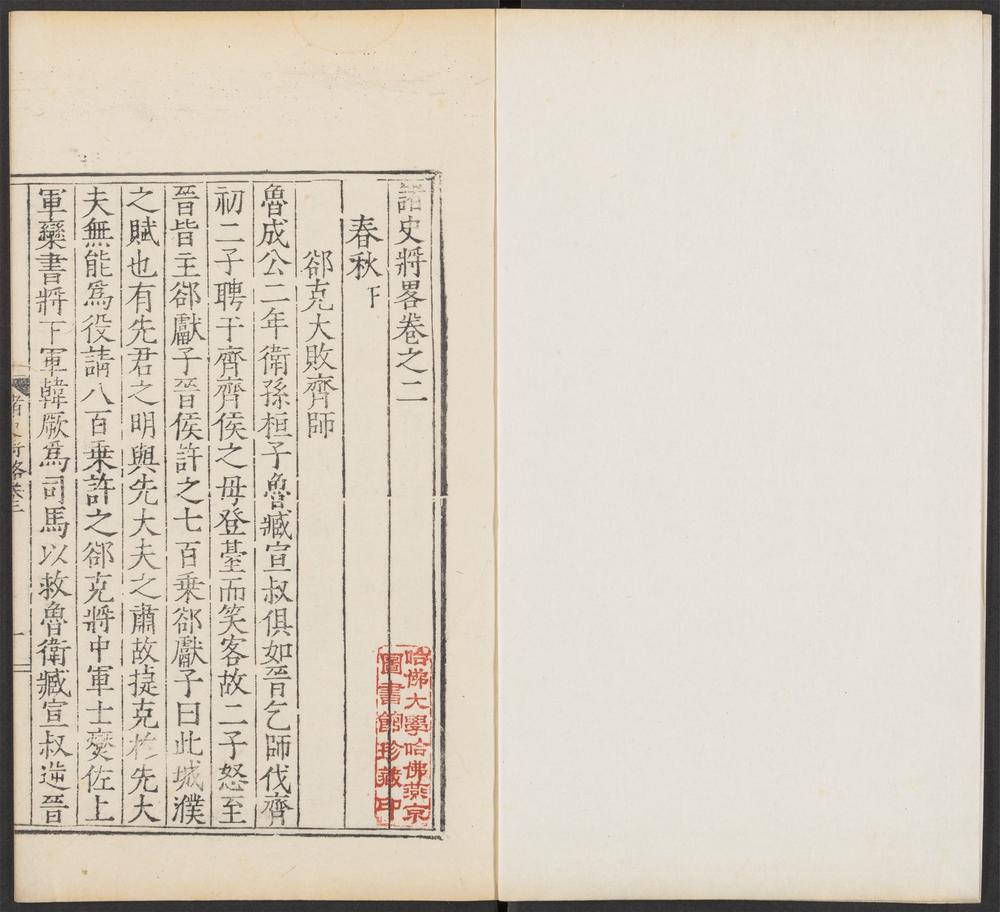 諸史將畧卷之二
春秋下
郤克大敗齊師
魯成公二年衛孫桓子魯臧宣叔俱如晉乞師伐齊
初二子聘于齊齊侯之母登臺而笑客故二子怒至
晉皆主郤獻子晉侯許之七百乗郤獻子曰此城濮
之賦也有先君之明與先大夫之肅故㨗克於先大
夫無能爲役請八百乗許之郤克將中軍士爕佐上
軍欒書將下軍韓厥爲司馬以救魯衛臧宣叔逆晉
哈佛大學哈佛燕京
圖書館珍藏印